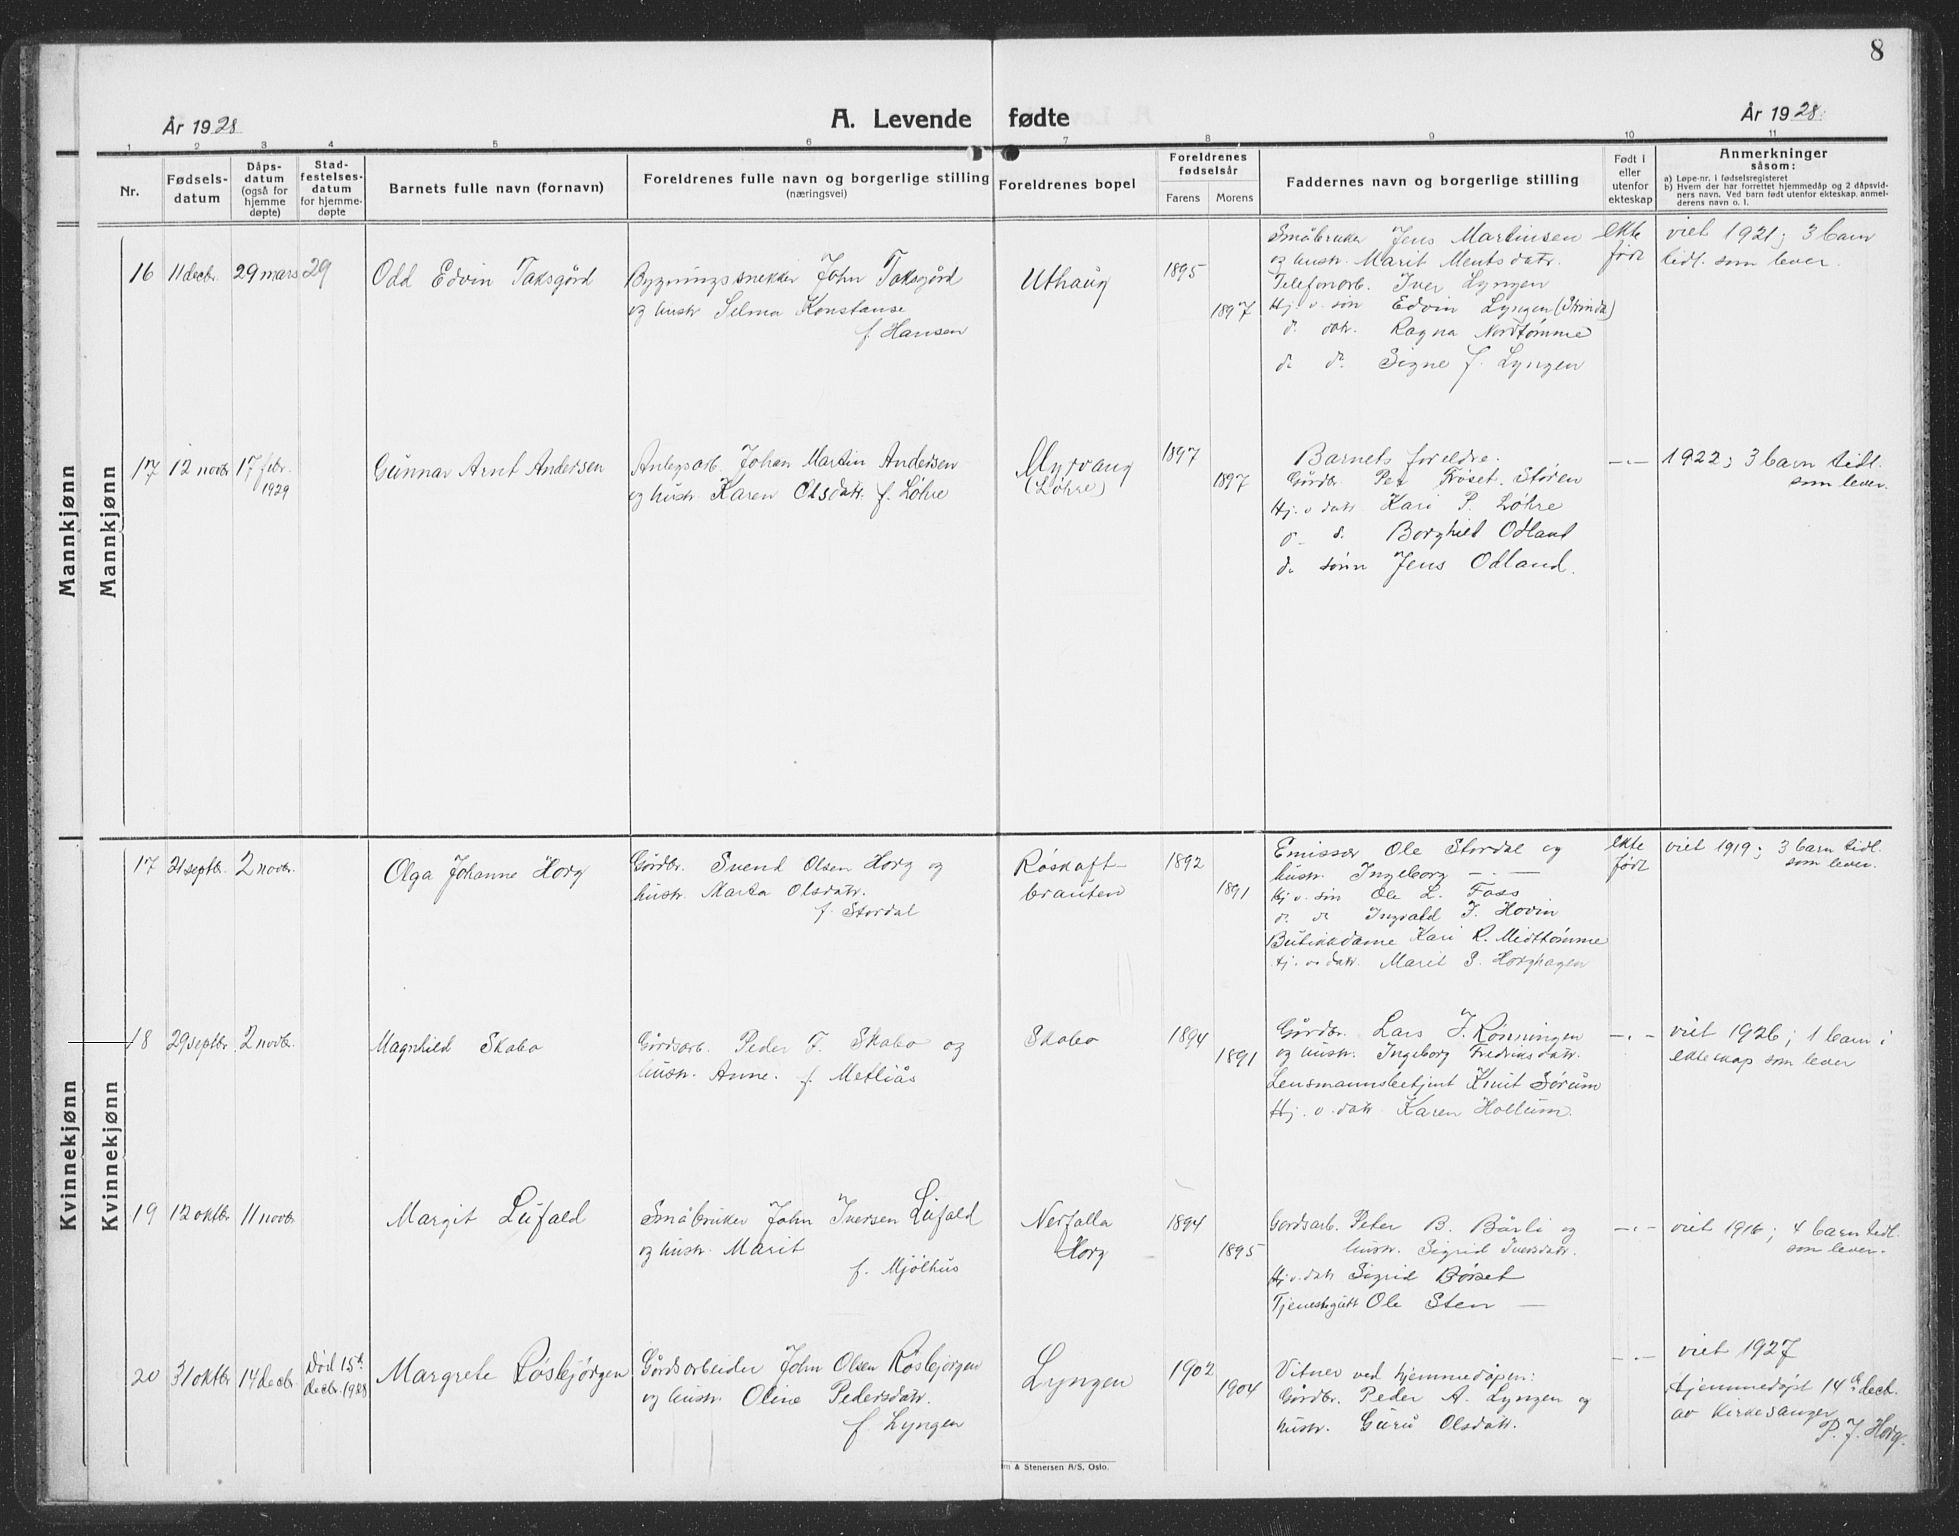 8
År 1928
A. Levende fødte
År 1928
1 2 3 4 5 6 7 8 9 10 11
Nr.
Fødsels-
datum
Dåps-
datum
(også for
hjemme
døpte)
Stad-
festelses-
datum
for hjemme-
døpte
Barnets fulle navn (fornavn)
Foreldrenes fulle navn og borgerlige stilling
(næringsvei)
Foreldrenes bopel
Foreldrenes
fødselsår
Farens Morens
Faddernes navn og borgerlige stilling
Født i
eller
utenfor
ekteskap
Anmerkninger
såsom:
a) Løpe-nr. i fødselsregisteret
b) Hvem der har forrettet hjemmedåp og 2 dåpsvid-
ners navn. Ved barn født utenfor ekteskap. anmel-
derens navn o. l.
Mannkjønn
Mannkjønn
16 11 decbr. 29 mars 29
Odd Edvin Taksgård
Bygningssnekker John Taksgård
og hustr. Selma Konstanse
f. Hansen
Uthaug
1895
1897
Småbruker Jens Martinsen
og hustr. Marit Mentsdatr.
Telefonarb. Iver Lyngen
Hj. v. søn Edvin Lyngen (Strinda)
d. datr. Ragna Nordtømme
d. d. Signe J. Lyngen
ekte
født
viet 1921; 3 barn
tidl. som lever.
17 12 novbr. 17 febr.
1929
Gunnar Arnt Andersen
Anlegsarb. Johan Martin Andersen
og hustr. Karen Olsdatr. f. Løhre
Myrvang
(Løhre)
1897
1897
Barnets foreldre.
Gårdbr. Per Frøset. Støren
Hj. v. datr. Kari P. Løhre
d. d. Borghild Odland
d. sønn Jens Odland.
—"—
1922; 3 barn tidl.
som lever.
Kvinnekjønn
Kvinnekjønn
17 21 septbr. 2 novbr.
Olga Johanne Horg
Gårdbr. Svend Olsen Horg og
hustr. Marta Olsdatr.
f. Stordal
Røskaft-
brauten
1892
1891
Emissær Ole Stordal og
hustr. Ingeborg —"—
Hj. v. søn Ole L. Foss
d. d. Ingvald J. Hovin
Butikkdame Kari R. Midttømme
Hj. v. datr. Marit S. Horghagen
ekte
født
viet 1919; 3 barn tidl.
som lever.
18 29 septbr. 2 novbr.
Magnhild Skabo
Gårdsarb. Peder F. Skabo og
hustr. Anne. f. Metliås
Skabo
1894
1891
Gårdbr. Lars J. Rønningen
og hustr. Ingeborg Fredriksdatr.
Lensmannsbetjent Knut Sørum
Hj. v. datr. Karen Hollum.
—"—
viet 1926; 1 barn i
ekteskap som lever
19 12 oktbr. 11 novbr.
Margit Lufald
Småbruker John Iversen Lufald
og hustr. Marit
f. Mjølhus
Nerfalla
Horg
1894
1895
Gardsarb. Peter B. Bårli og
hustr. Sigrid Iversdatr.
Hj. v. datr. Sigrid Børset
Tjenestegutt Ole Sten —
—"—
viet 1916; 4 barn tidl.
som lever.
20 31 oktbr. 14 decbr. Død 15de
decbr. 1928
Margrete Røsbjørgen
Gårdsarbeider John Olsen Røsbjørgen
og hustr. Oline Pedersdatr.
f. Lyngen
Lyngen
1902
1904
Vitner ved hjemmedåpen:
Gårdbr. Peder A. Lyngen og
hustr. Guru Olsdatr.
—"—
viet 1927
Hjemmedøpt 14de decb.
av kirkesanger
P. J. Horg.
& Stenersen A/S, Oslo.